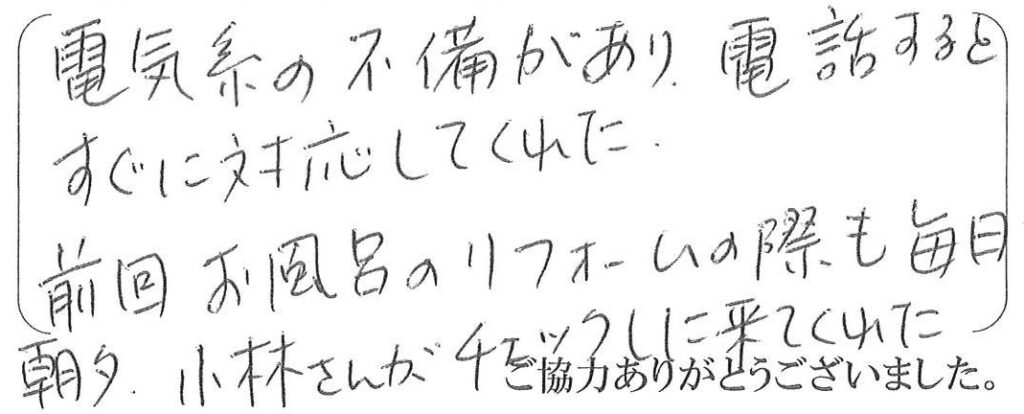 電気系の不備があり、電話すると
すぐに対応してくれた.
前回お風呂のリフォームの際も毎日
朝夕、小林さんがチェックしに来てくれた
ご協力ありがとうございました。